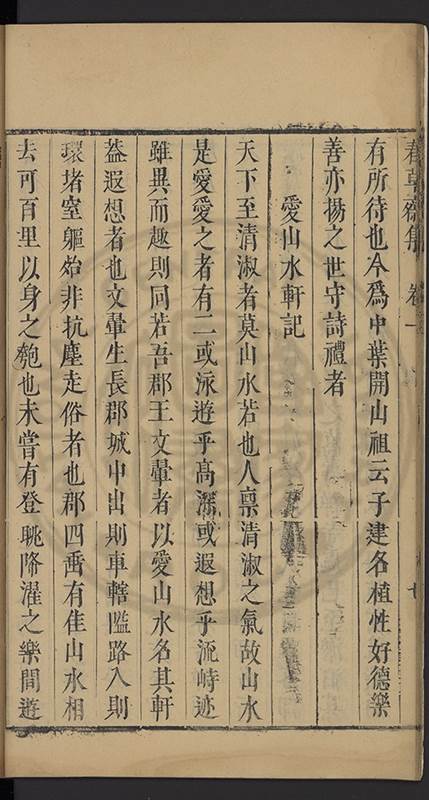 春草齋集 卷一 七
有所待也今爲中葉開山祖云子建名植性好德樂
善亦揚之世守詩禮者
愛山水軒記
天下至清淑者莫山水若也人禀清淑之氣故山水
是愛愛之者有二或泳遊乎高深或遐想乎流峙迹
雖異而趣則同若吾郡王文暈者以愛山水名其軒
葢遐想者也文暈生長郡城中出則車轄隘路入則
環堵室軀殆非抗塵走俗者也郡四禹有佳山水相
去可百里以身之匏也未嘗有登眺降濯之樂間遊